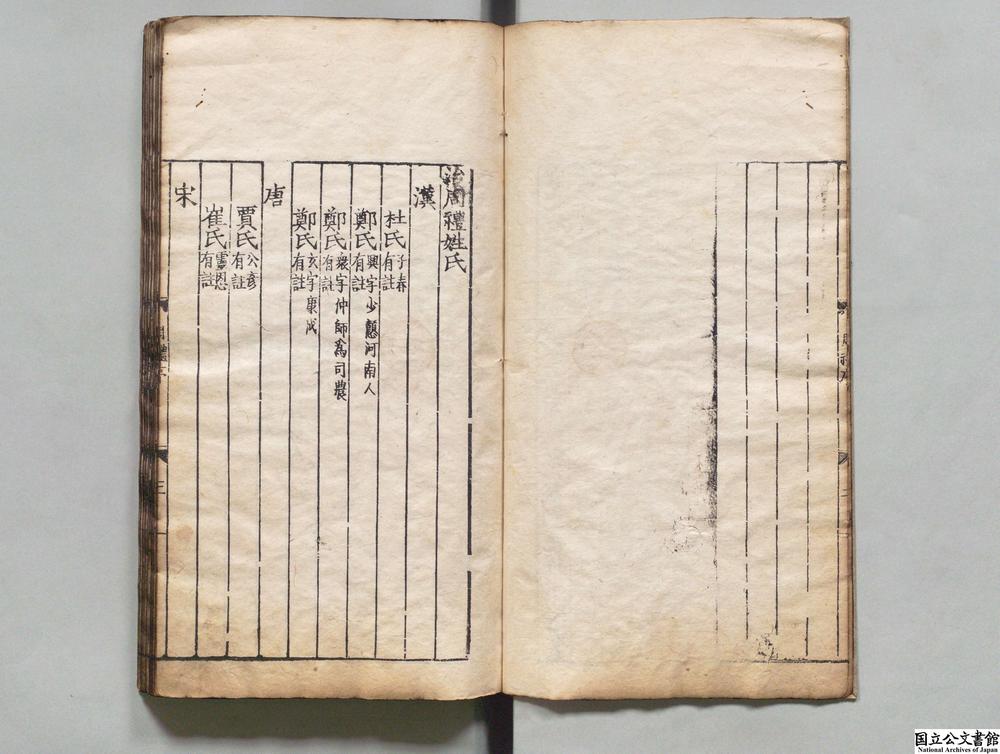 治周禮姓氏
漢
杜氏子春有註
鄭氏興字少贛河南人有註
鄭氏衆字仲師為司農有註
鄭氏玄字康成有註
唐
賈氏公彥有註
崔氏靈恩有註
宋
三
国立公文書館
National Archives of Japan